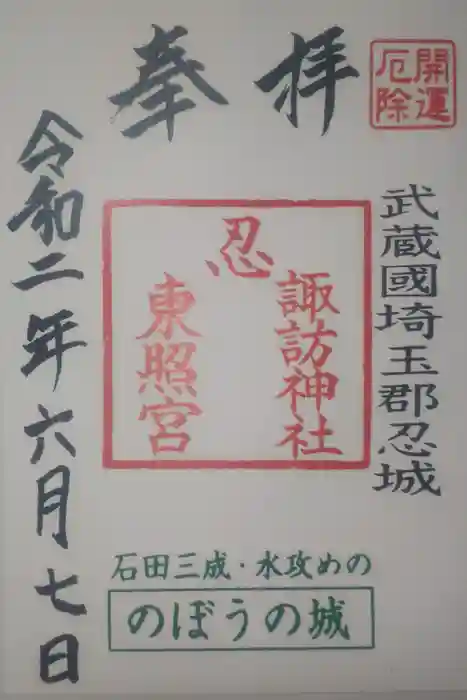 開運
厄除
奉拝
武蔵國埼玉郡忍城
忍
諏訪神社
東照宮
石田三成・水攻めの
のぼうの城
令和二年六月七日